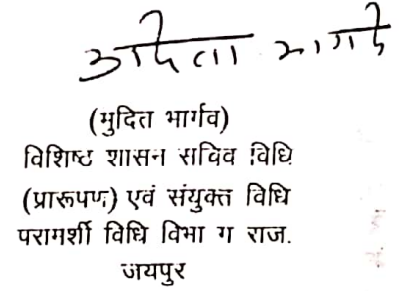 (मुदित भार्गव)
विशिष्ट शासन सचिव विधि
(प्रारूपण) एवं संयुक्त विधि
परामर्शी विधि विभा ग राज.
जयपुर